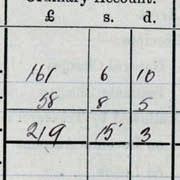 Ordinary Account.
£ s. d.
161 6 10
58 8 5
219 15 3